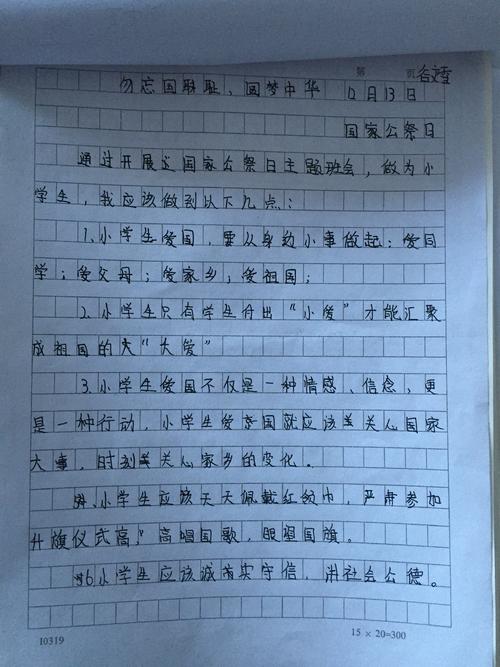 第 页
勿忘国耻,圆梦中华 12月13日
国家公祭日
通过开展这国家公祭日主题班会,做为小
学生,我应该做到以下几点:
1.小学生爱国,要从身边小事做起:爱同
学;爱父母;爱家乡,爱祖国;
2.小学生只有学生付出“小爱”才能汇聚
成祖国的大“大爱”
3.小学生爱国不仅是一种情感、信念,更
是一种行动,小学生爱国就应该关心国家
大事,时刻关心家乡的变化。
4.小学生应该天天佩戴红领巾,严肃参加
升旗仪式高,高唱国歌,眼望国旗。
6.小学生应该诚实守信,社会公德。
10319 15×20=300